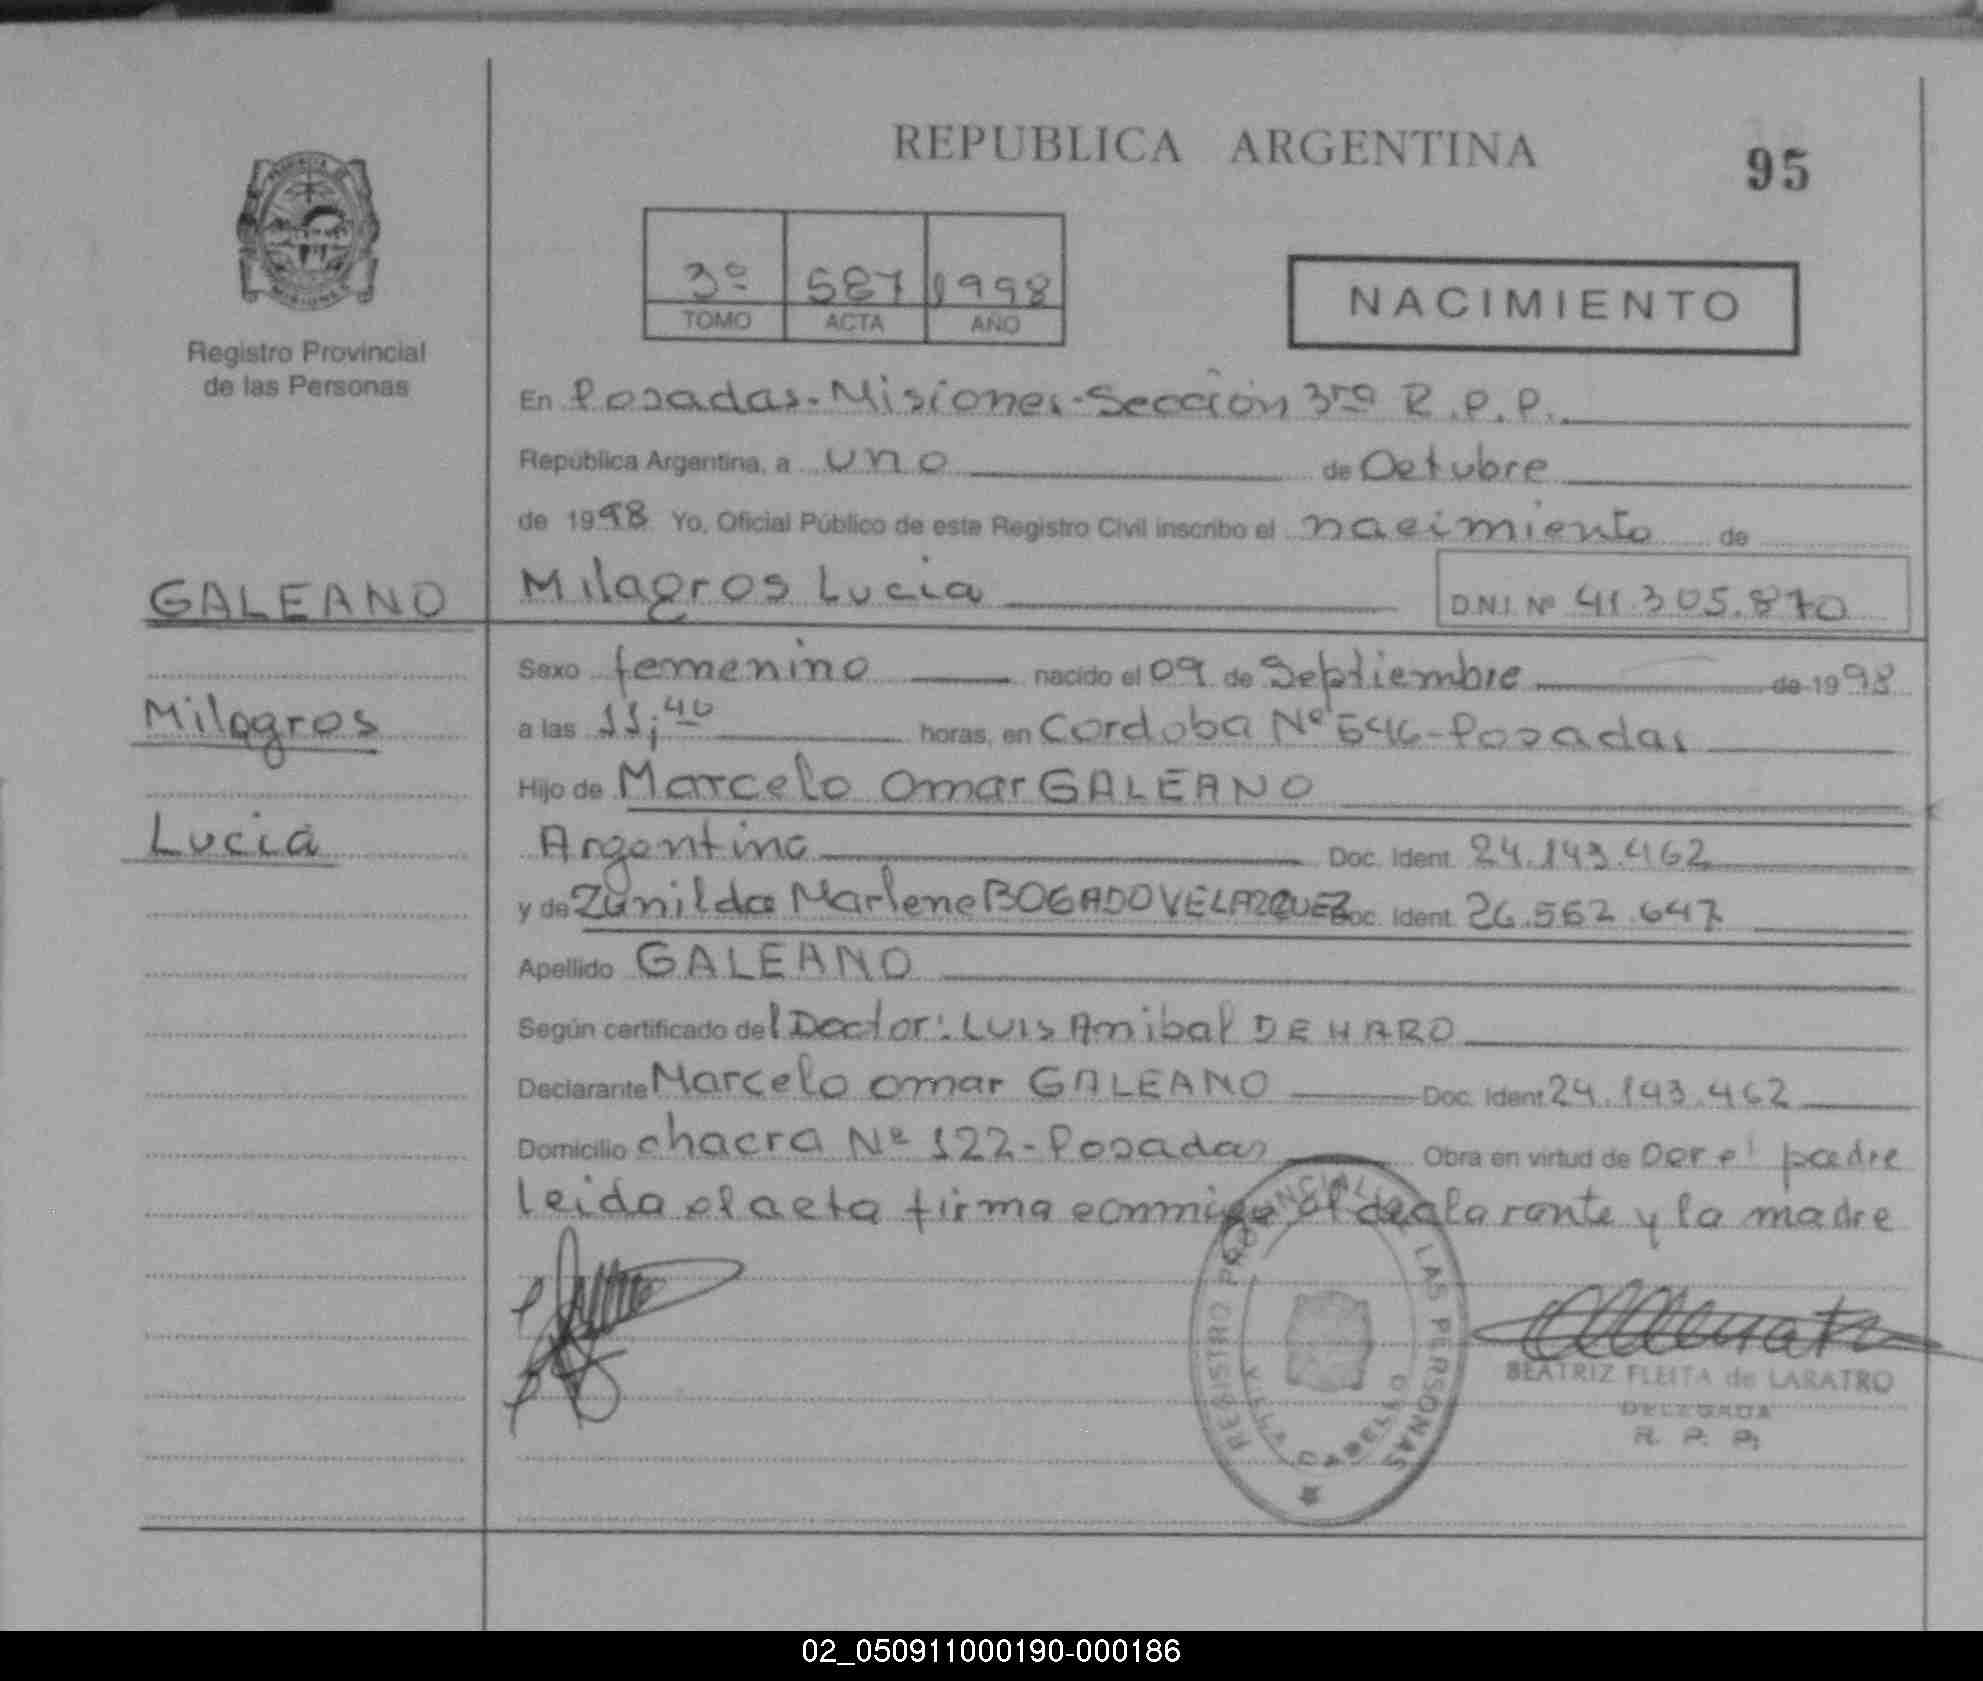 REPUBLICA ARGENTINA
95
3º 587 1998
TOMO ACTA AÑO
NACIMIENTO
Registro Provincial
de las Personas
En Posadas-Misiones-Sección 3ra R.P.P.
República Argentina, a uno de Octubre
de 1998 Yo, Oficial Público de este Registro Civil inscribo el nacimiento de
GALEANO Milagros Lucia D.N.I. Nº 41.305.870
Sexo femenino nacido el 09 de Septiembre de 1998
Milagros
a las 11,40 horas, en Cordoba Nº 546-Posadas
Hijo de Marcelo Omar GALEANO
Lucia
Argentino Doc. Ident. 24.143.462
y de Zunilda Marlene BOGADO VELAZQUEZ Doc. Ident. 26.562.647
Apellido GALEANO
Según certificado del Doctor: LUIS Anibal DE HARO
Declarante Marcelo omar GALEANO Doc. Ident. 24.143.462
Domicilio chacra Nº 122-Posadas Obra en virtud de ser el padre
leida el acta firma conmigo el declarante y la madre
REGISTRO PROVINCIAL DE LAS PERSONAS
BEATRIZ FLEITA de LARATRO
DELEGADA
R. P. P.
02_050911000190-000186